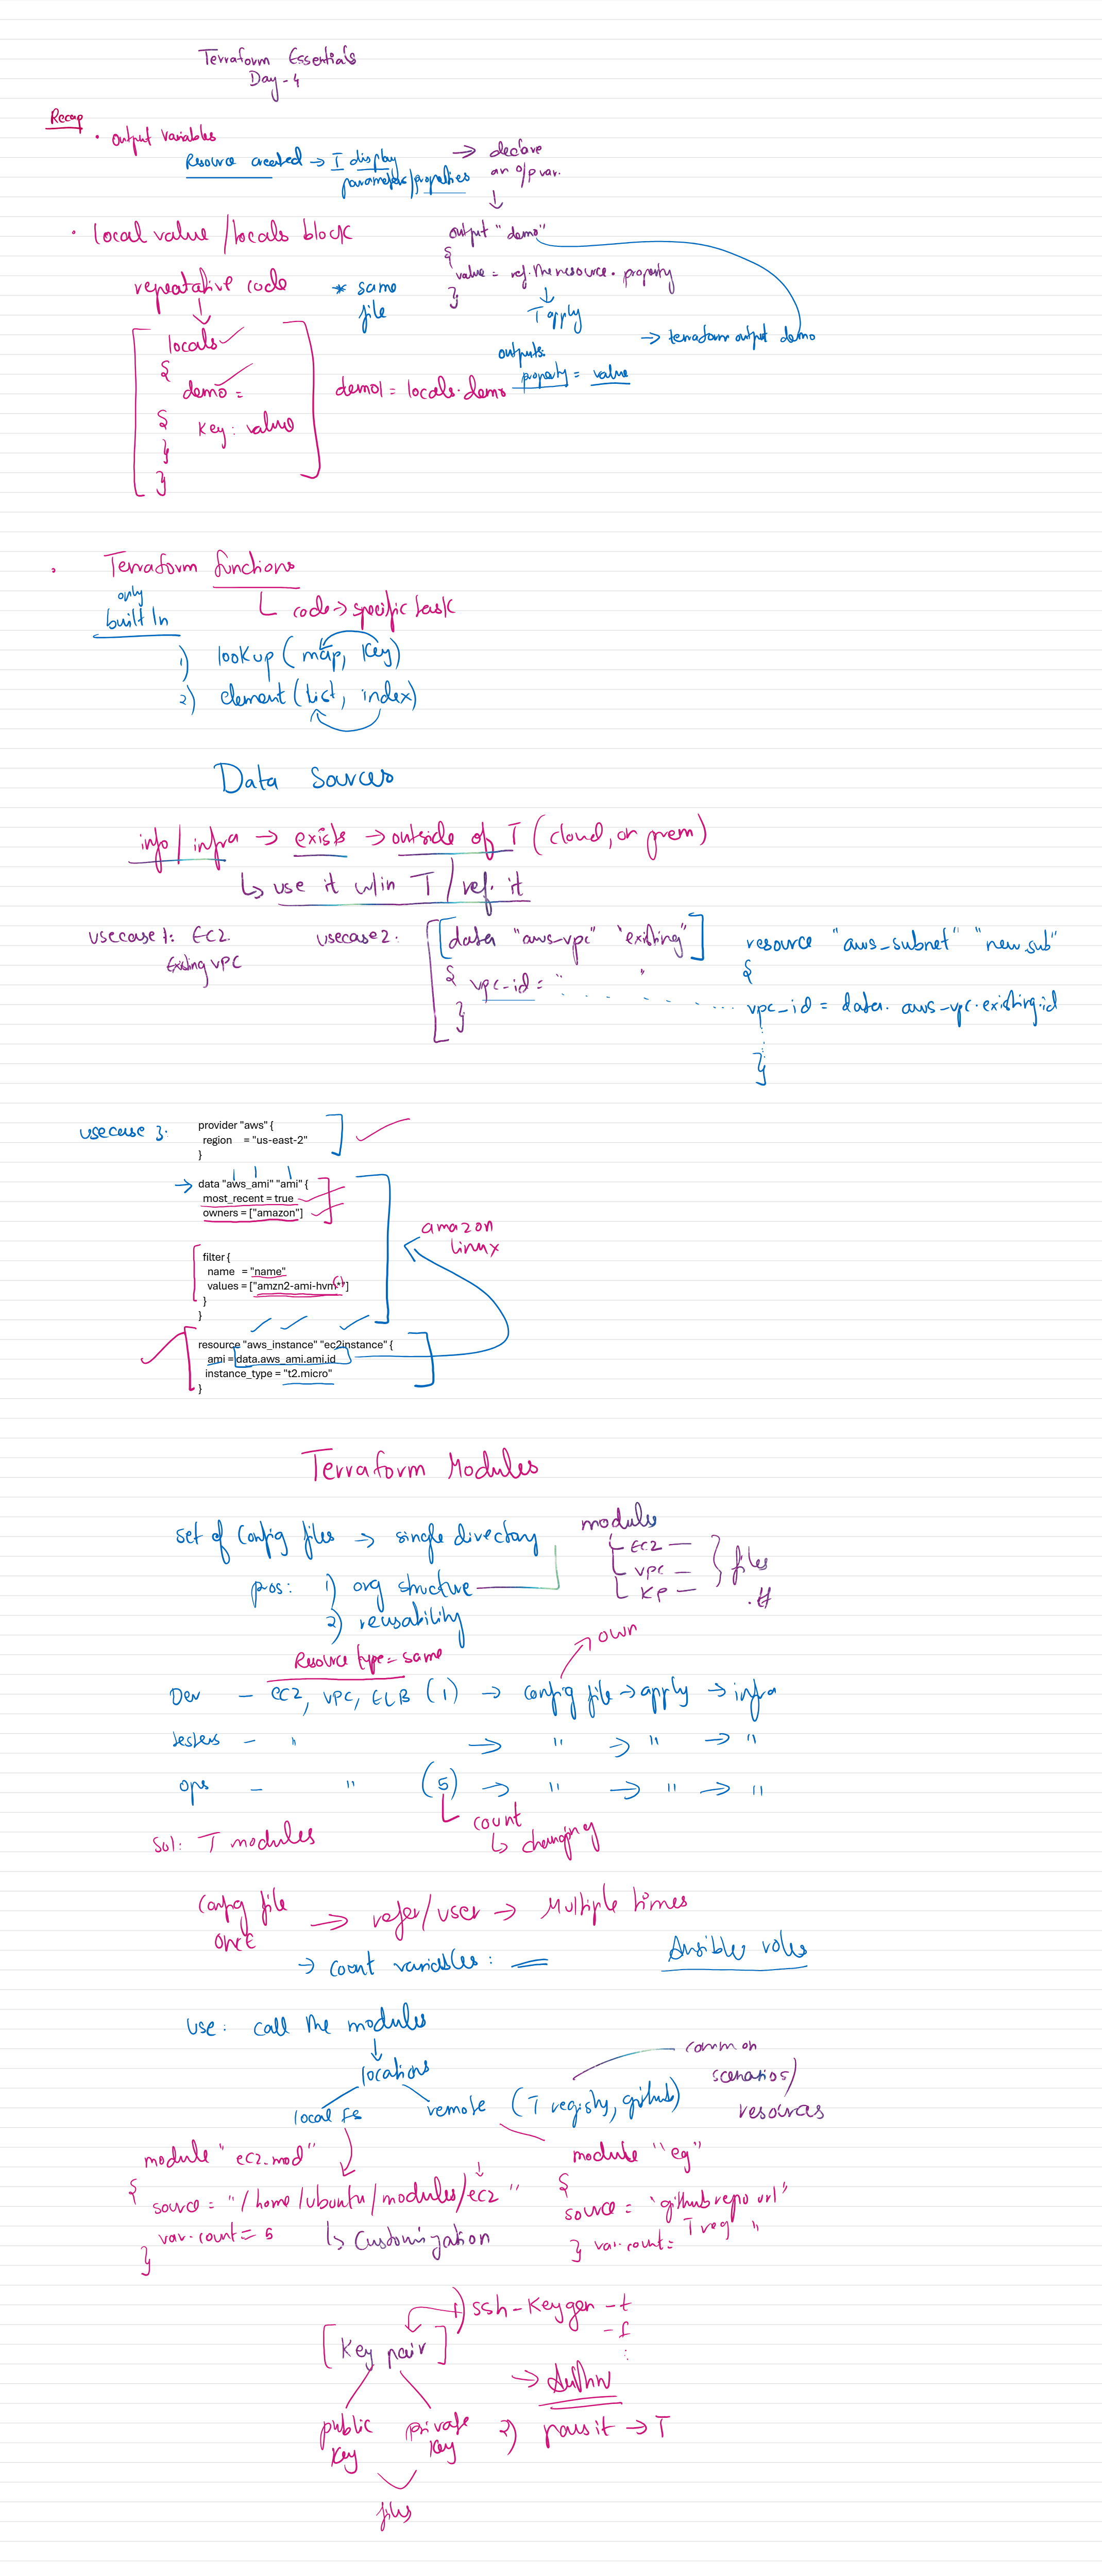 Terraform Essentials
Day-4
Recap
• output variables
Resource created → T display
parameters/properties
→ declare
an o/p var.
↓
output "demo"
{
value = ref.the resource. property
}
↓
T apply
outputs:
property = value
→ terraform output demo
• local value / locals block
repeatative code
↓
* same
file
locals
{
demo =
{ key: value
}
}
demo1 = locals.demo
• Terraform functions
only
built In
code → specific task
1) lookup (map, key)
2) element (list, index)
Data Sources
info / infra → exists → outside of T (cloud, on prem)
↳ use it w/in T / ref. it
usecase 1: EC2
Existing VPC
usecase 2:
data "aws-vpc" "existing"
{ vpc-id = " "
}
resource "aws_subnet" "new_sub"
{
vpc_id = data. aws-vpc.existing.id
}
usecase 3:
provider "aws" {
region = "us-east-2"
}
→ data "aws_ami" "ami" {
most_recent = true
owners = ["amazon"]
filter {
name = "name"
values = ["amzn2-ami-hvm*"]
}
}
amazon
linux
resource "aws_instance" "ec2instance" {
ami = data.aws_ami.ami.id
instance_type = "t2.micro"
}
Terraform Modules
set of config files → single directory
pros: 1) org structure
2) reusability
modules
EC2 —
VPC —
KP —
files
.tf
Resource type = same
own
Dev - EC2, VPC, ELB (1) → config file → apply → infra
testers - " → " → " → "
ops - " (5) → " → " → "
count
↳ changing
Sol: T modules
Config file
once
→ refer/user → Multiple times
→ count variables:
Ansible roles
use: call the modules
↓
locations
local fs
remote (T registry, github)
common
scenarios/
resources
module "ec2-mod"
{
source = "/home/ubuntu/modules/ec2"
var.count = 5
}
↳ Customization
module "eg"
{
source = "github repo url"
T reg "
} var.count =
1) ssh-keygen -t
-f
Key pair
→ Authn
public
key
private
key
2) pass it → T
files